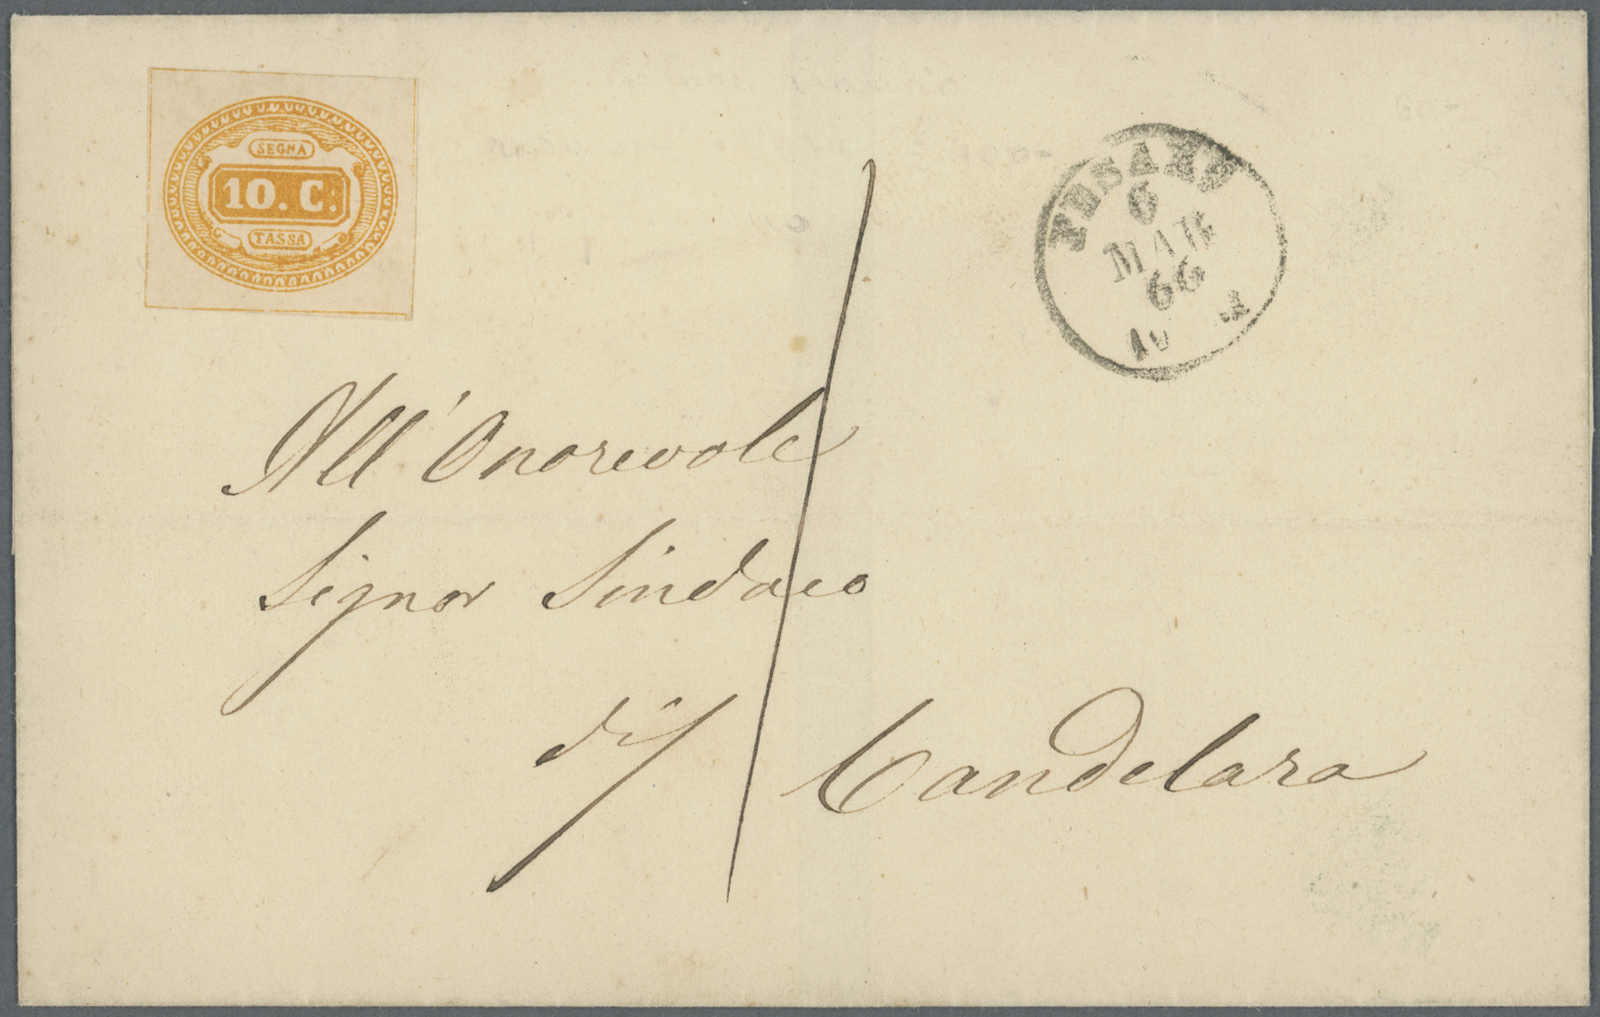 SEGNA
10. C.
TASSA
PESARO
6
MAR
66
10
All'Onorevole
Signor Sindaco
di Candelara